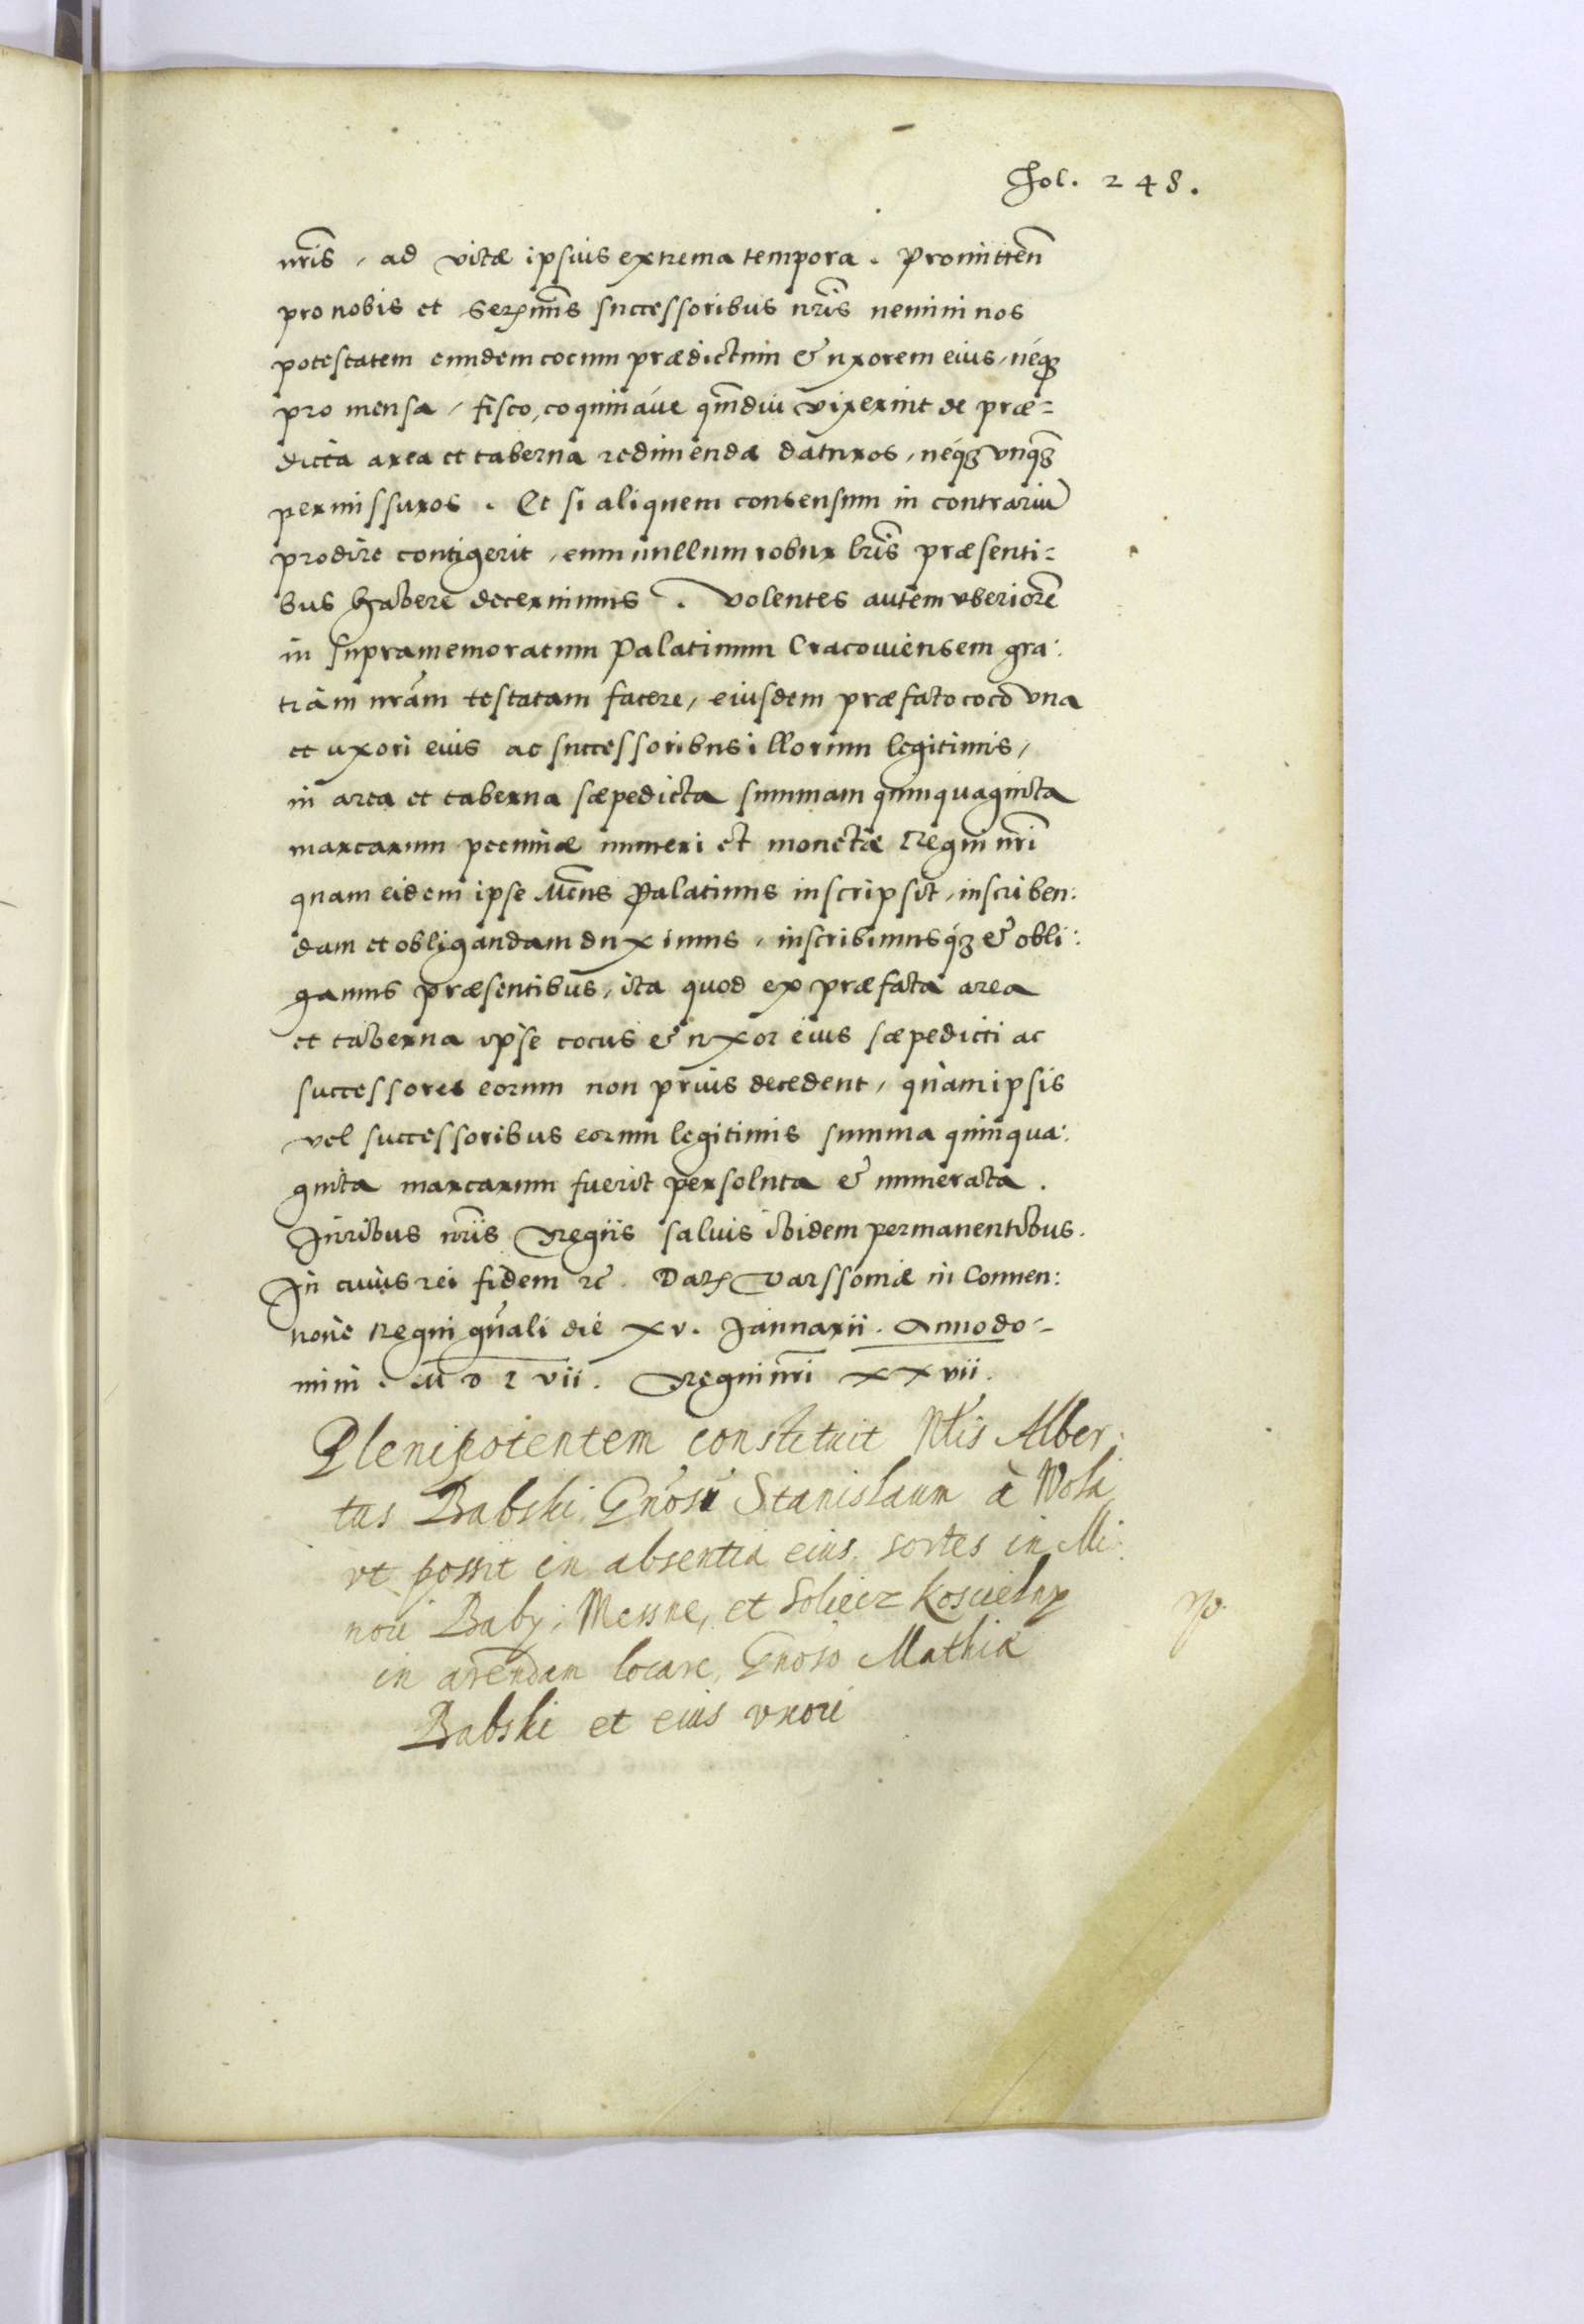 Fol. 248.
nr̄is, ad vitæ ipsius extrema tempora. Promitten̄
pro nobis et Serm̄is successoribus nr̄is nemini nos
potestatem eundem cocum prædictum & uxorem eius, neq₃
pro mensa, fisco, coquináue qm̄diu vixerint de præ=
dicta area et taberna redimenda daturos, neq₃ vnq₃
permissuros. Et si aliquem consensum in contrariū
prodire contigerit, eum nullum robur lr̄is præsenti=
bus habere decernimus. Volentes autem vberiorē
in supramemoratum Palatinum Cracouiensem gra:
tiam nr̄am testatam facere, eiusdem præfato coco vna
et uxori eius ac successoribus illorum legitimis,
in area et taberna sæpedicta summam quinquaginta
marcarum pecuniæ numeri et monetæ Regni nr̄i
quam eidem ipse Mcūs Palatinus inscripsit, inscriben:
dam et obligandam duximus, inscribimusq́₃ & obli:
gamus præsentibus, ita quod ex præfata area
et taberna ipse cocus & uxor eius sæpedicti ac
successores eorum non prius decedent, quàm ipsis
vel successoribus eorum legitimis summa quinqua:
ginta marcarum fuerit persoluta & numerata.
Juribus nr̄is Regiis saluis ibidem permanentibus.
In cuius rei fidem rc̄. Dat. Varssoniæ in Conuen:
tione Regni gn̄ali die xv. Januarii. Anno do=
mini. M D L vii. Regni nr̄i xxvii.
Plenipotentem constituit Nlis Alber:
tus Babski, Gnosū Stanislaum à Wola
vt possit in absentia eius, sortes in Mi:
nori Baby, Messne, et Soliecz Koscielny
in arendam locare, Gnoso Mathiæ
Babski et eius vxori